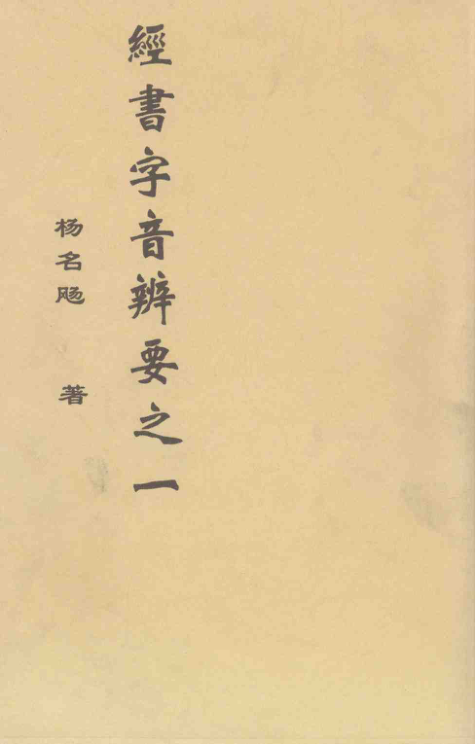 經書字音辨要之一
杨名飏 著